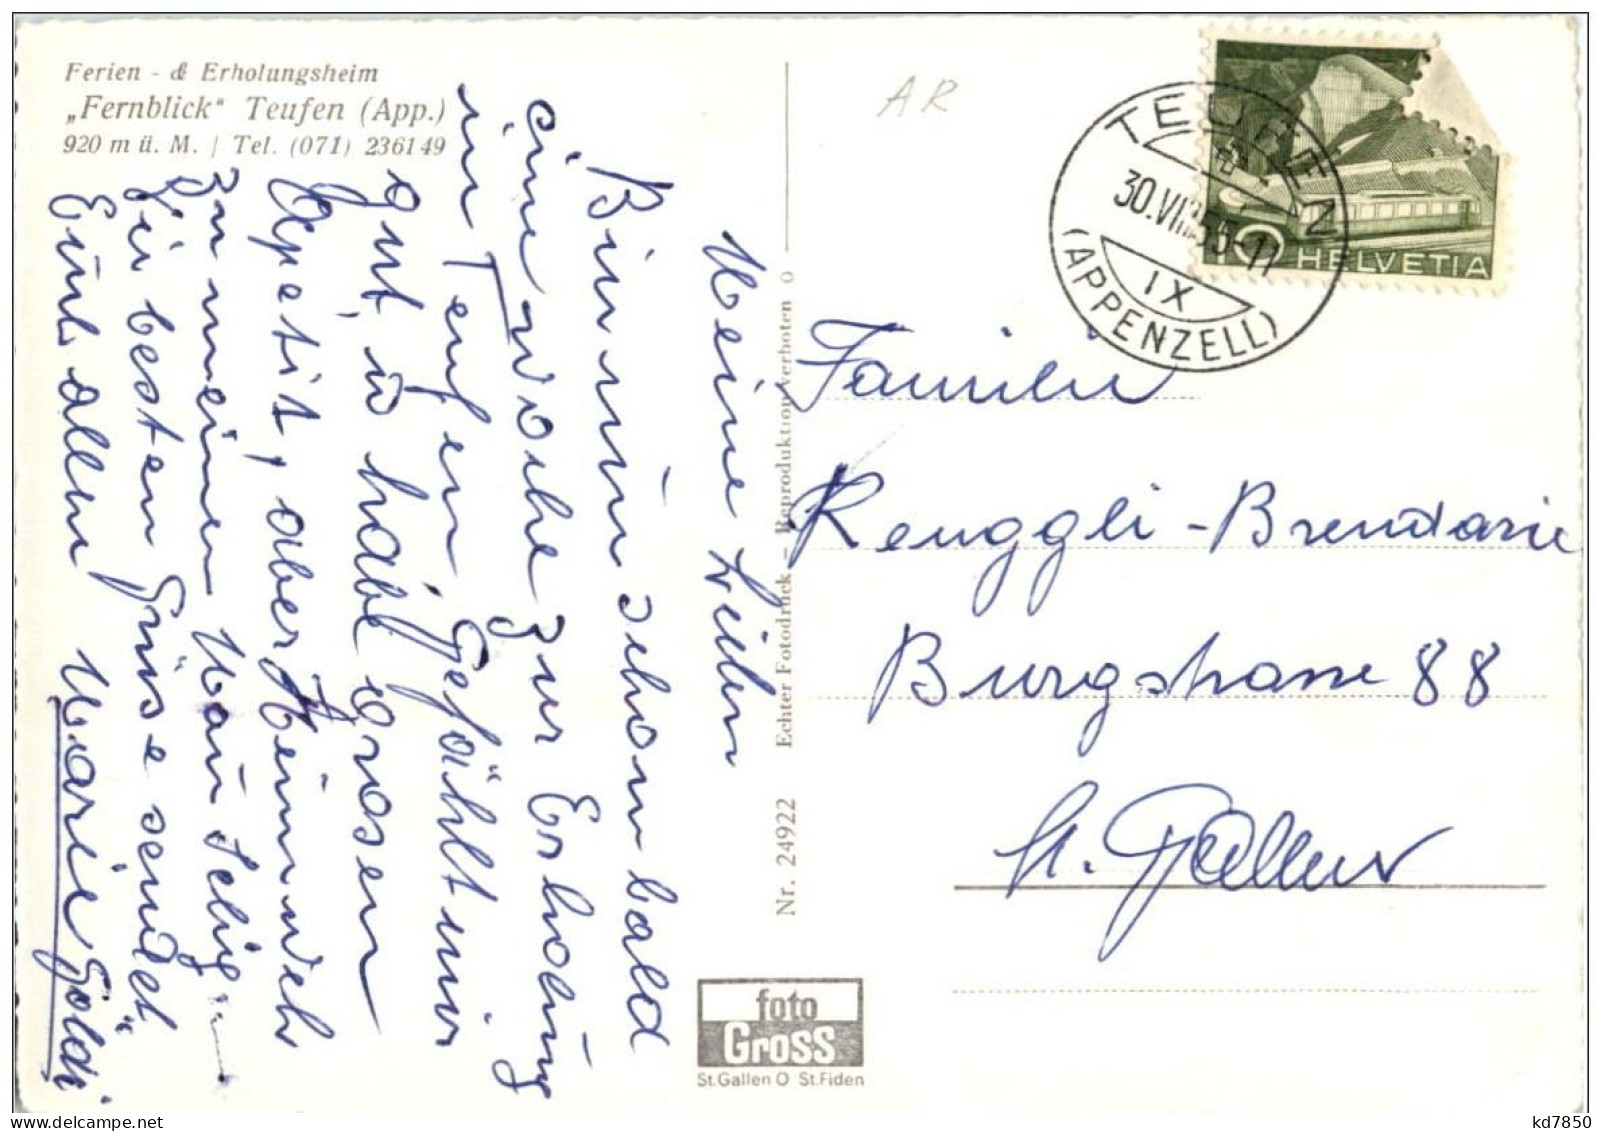 Ferien - & Erholungsheim
„Fernblick“ Teufen (App.)
920 m ü. M. / Tel. (071) 236149
AR
TEUFEN
30.VIII.55-11
IX
(APPENZELL)
10 HELVETIA
Meine Lieben
Bin nun schon bald
eine Woche zur Erholung
in Teufen Gefählt mir
gut, u habe grosen
Apetit, aber Heimweh
zu meinem Man Selig.
Die besten Grüse sendet
Euch allen Marie Göldi
Nr. 24922 Echter Fotodruck - Reproduktion verboten O
Familie
Renggli - Brendarie
Burgstrasse 88
St. Gallen
foto
Gross
St.Gallen O St.Fiden
kd7850